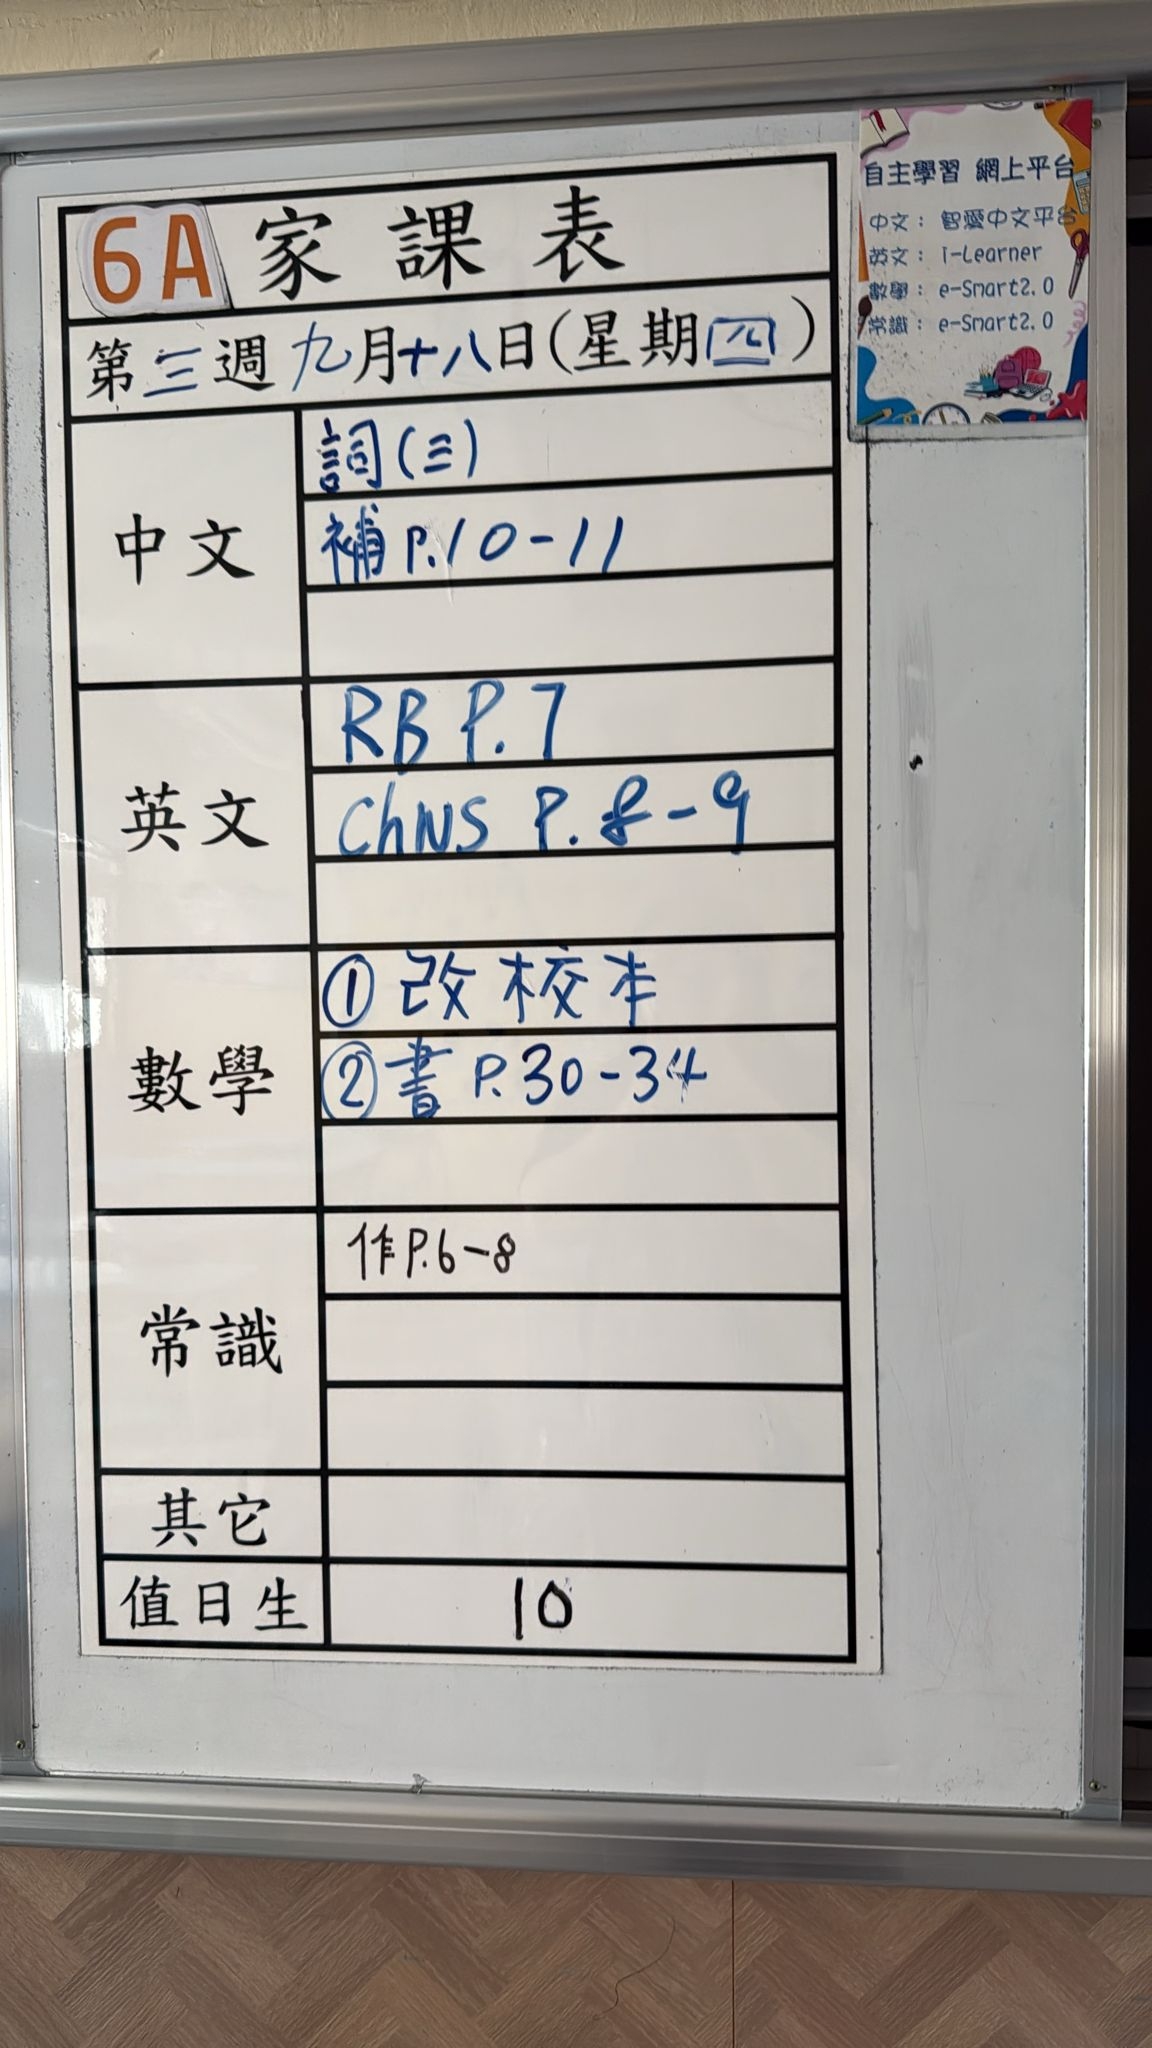 6A 家課表
第三週九月十八日(星期四)
中文
詞(三)
補 P.10-11
英文
RB P.7
ChWS P.8-9
數學
①改校本
②書 P.30-34
常識
作P.6-8
其它
值日生
10
自主學習 網上平台
中文： 智愛中文平台
英文： i-Learner
數學： e-Smart2.0
常識： e-Smart2.0